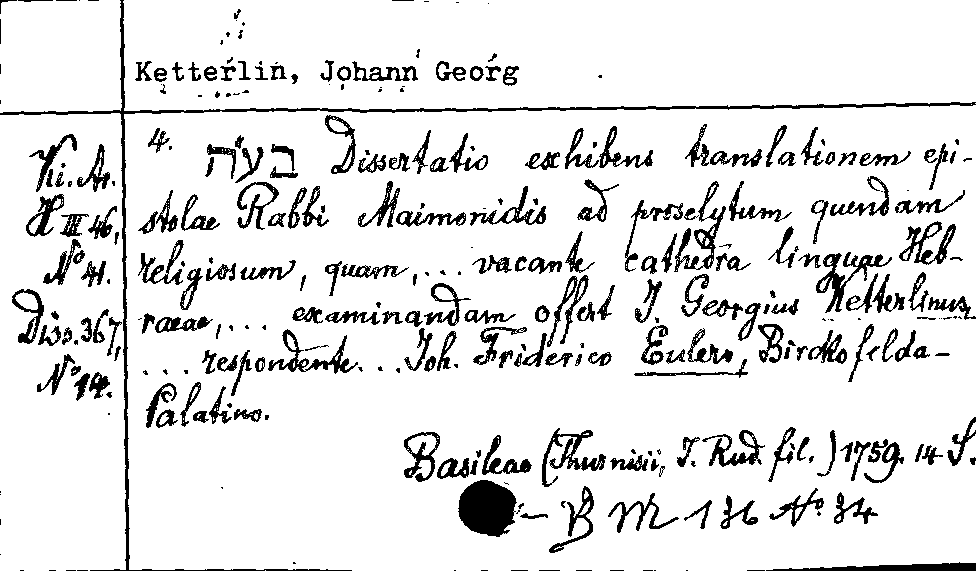 Ketterlin, Johann Georg
Ki. Ar.
H III 46,
No 41.
Diss. 367,
No 14.
4. בע״ה Dissertatio exhibens translationem epi-
stolae Rabbi Maimonidis ad proselytum quendam
religiosum, quam, ... vacante cathedra linguae Heb-
raeae, ... examinandam offert J. Georgius Ketterlinus,
... respondente ... Joh. Friderico Eulero, Birckofelda-
Palatino.
Basileae (Thurnisii, J. Rud. fil.) 1759. 14 S.
– B M 136 No 34